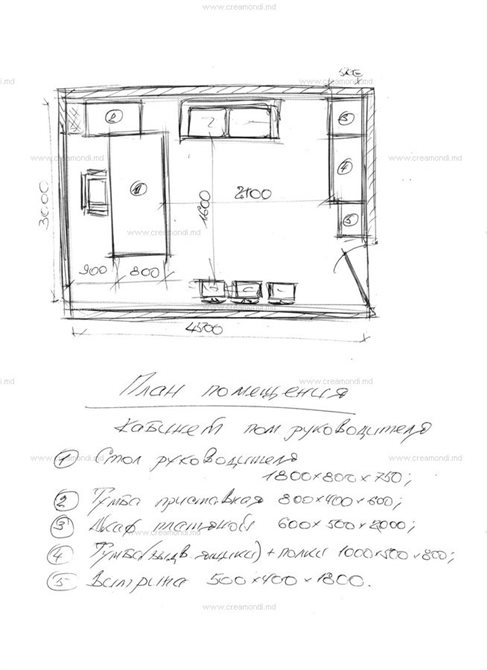 www.creamondi.md
500
2
3
www.creamondi.md
4
1
3000
1600
2100
5
www.creamondi.md
900
800
4500
План помещения
Кабинет пом руководителя
1 Стол руководителя
1800×800×750;
2 Тумба приставная 800×400×600;
3 Шкаф платяной 600×500×2000;
4 Тумба(выдв ящики)+полки 1000×500×800;
5 Витрина 500×400×1800.
www.creamondi.md